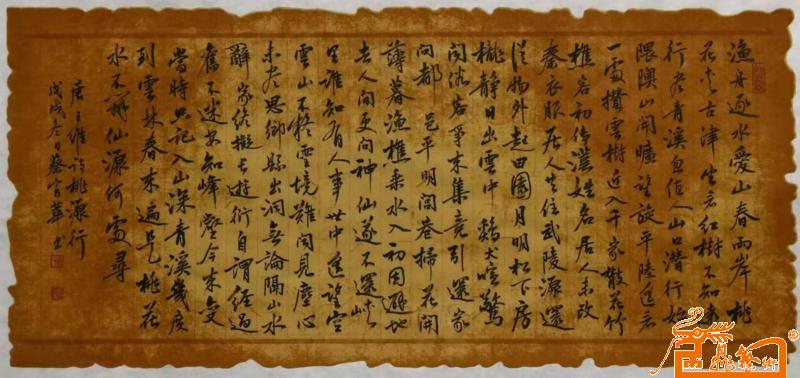 漁舟逐水愛山春兩岸桃
花夾古津坐看紅樹不知遠
行盡青溪忽值人山口潛行始
隈隩山開曠望旋平陸遙看
一處攢雲樹近入千家散花竹
樵客初傳漢姓名居人未改
秦衣服居人共住武陵源還
從物外起田園月明松下房
櫳靜日出雲中鷄犬喧驚
聞俗客爭來集競引還家
問都邑平明閭巷掃花開
薄暮漁樵乘水入初因避地
去人間更問神仙遂不還峽
里誰知有人事世中遙望空
雲山不疑靈境難聞見塵心
未盡思鄉縣出洞無論隔山水
辭家終擬長遊衍自謂經過
舊不迷安知峰壑今來變
當時只記入山深青溪幾度
到雲林春來遍是桃花
水不辨仙源何處尋
唐王維詩桃源行
戊戌冬日蔡官華書